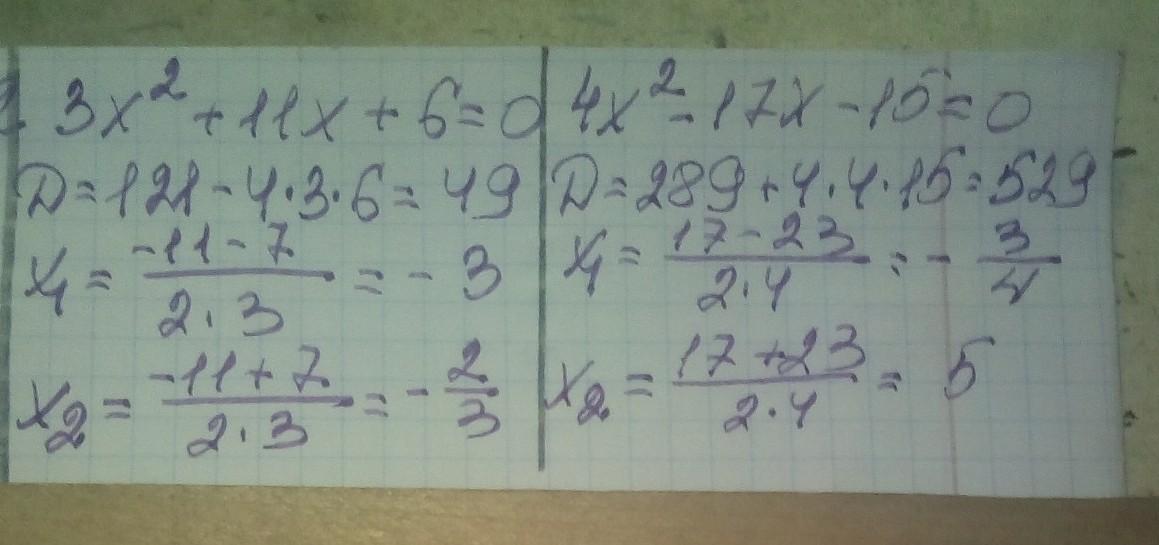 3x² + 11x + 6 = 0
D = 121 - 4·3·6 = 49
x₁ = (-11 - 7)/(2·3) = -3
x₂ = (-11 + 7)/(2·3) = -2/3
4x² - 17x - 15 = 0
D = 289 + 4·4·15 = 529
x₁ = (17 - 23)/(2·4) = -3/4
x₂ = (17 + 23)/(2·4) = 5